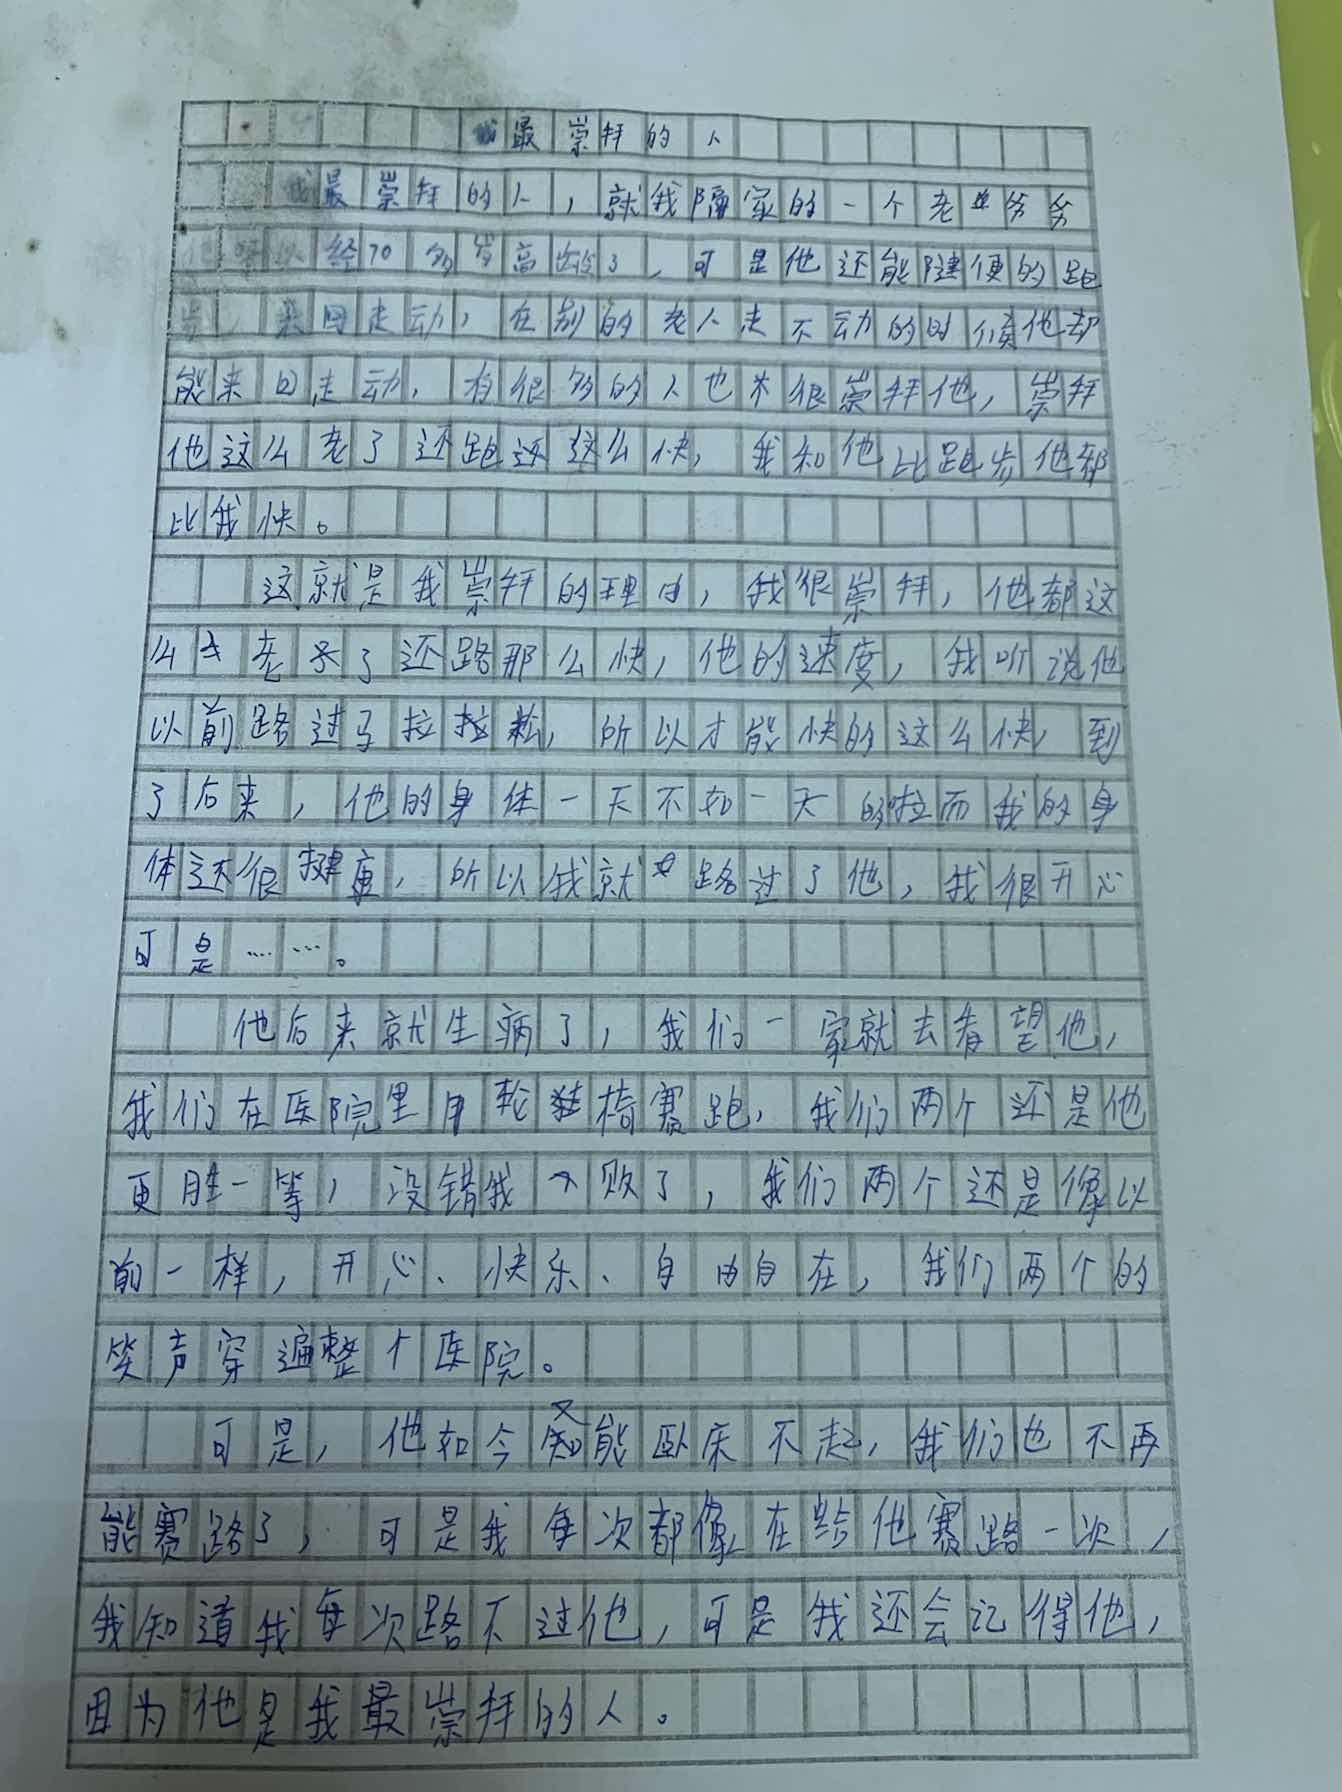 我最崇拜的人
我最崇拜的人，就我隔家的一个老爷爷
经70多岁高龄了，可是他还能健便的跑
步，来回走动，在别的老人走不动的时候他却
能来回走动，有很多的人也很崇拜他，崇拜
他这么老了还跑还这么快，我和他比跑步他都
比我快。
这就是我崇拜的理由，我很崇拜，他都这
么老了还路那么快，他的速度，我听说他
以前路过马拉拉松，所以才能快的这么快，到
了后来，他的身体一天不如一天的啦而我的身
体还很健康，所以我就路过了他，我很开心
可是……。
他后来就生病了，我们一家就去看望他，
我们在医院里用轮椅赛跑，我们两个还是他
更胜一等，没错我又败了，我们两个还是像以
前一样，开心、快乐、自由自在，我们两个的
笑声穿遍整个医院。
可是，他如今只能卧床不起，我们也不再
能赛路了，可是我每次都像在给他赛路一次，
我知道我每次路不过他，可是我还会记得他，
因为他是我最崇拜的人。